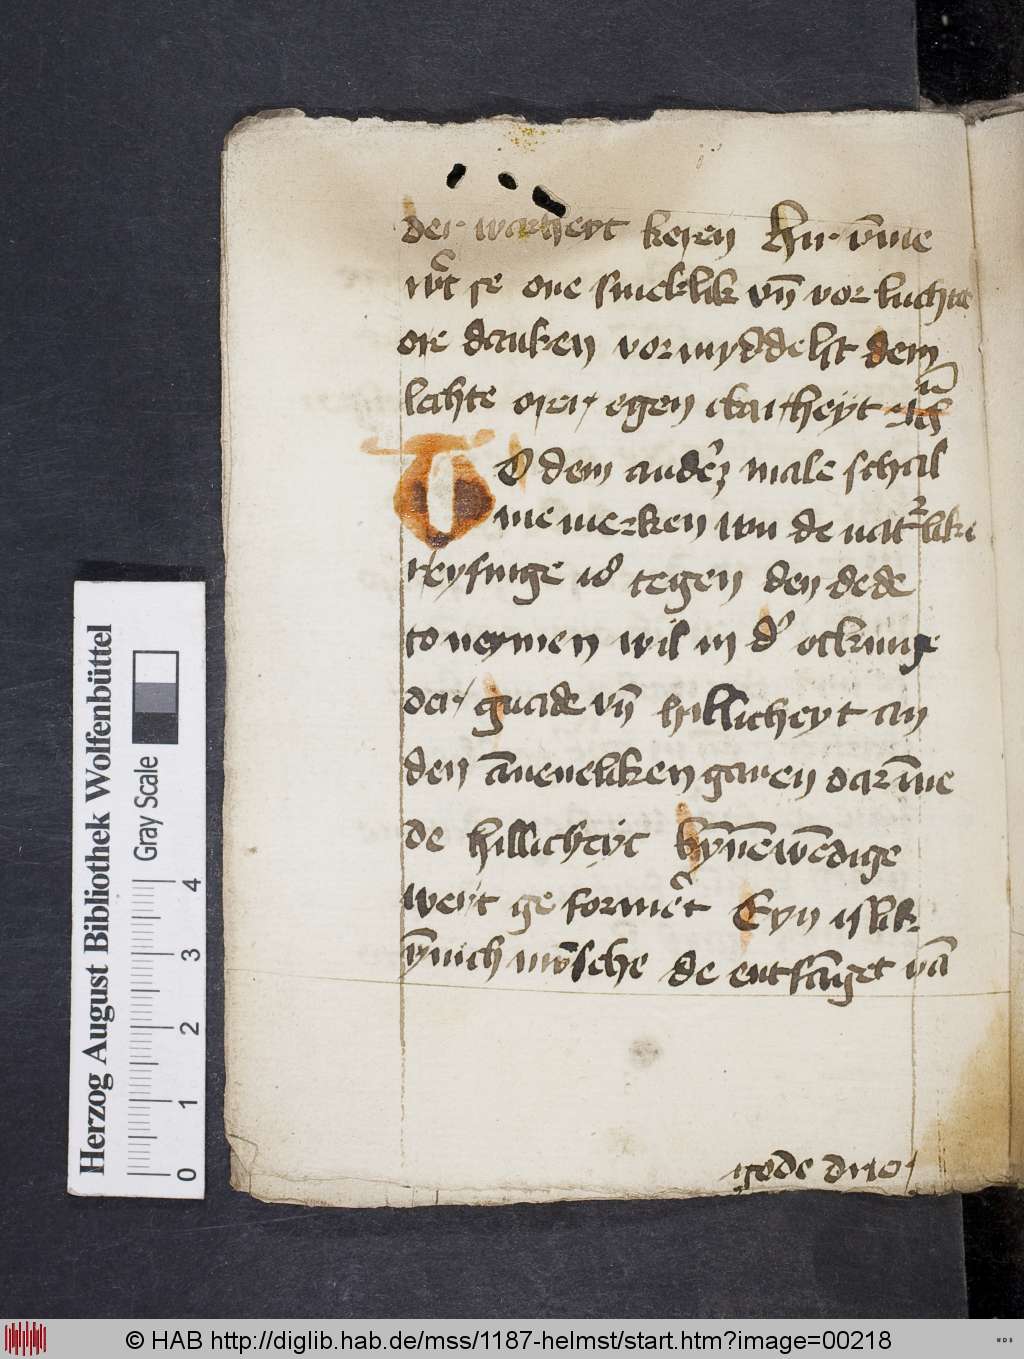 der warheyt keren Hir v̄me
wͤt se one smeklik vn̄ vor luchte
ore danken vormyddelst dem
lichte orer egen klarheyt
TO dem ander male schal
me merken wu de naturlike
reysinge is tegen den dede
to neymen wil in dͬ
der gnade vn̄ hillicheyt an
den geven darv̄me
de hillicheyt bȳnēwēdige
wert ge formert Eyn islik
ȳnich mīsche de entfāget vā
gode drier
Herzog August Bibliothek Wolfenbüttel
Gray Scale
0 1 2 3 4
© HAB http://diglib.hab.de/mss/1187-helmst/start.htm?image=00218